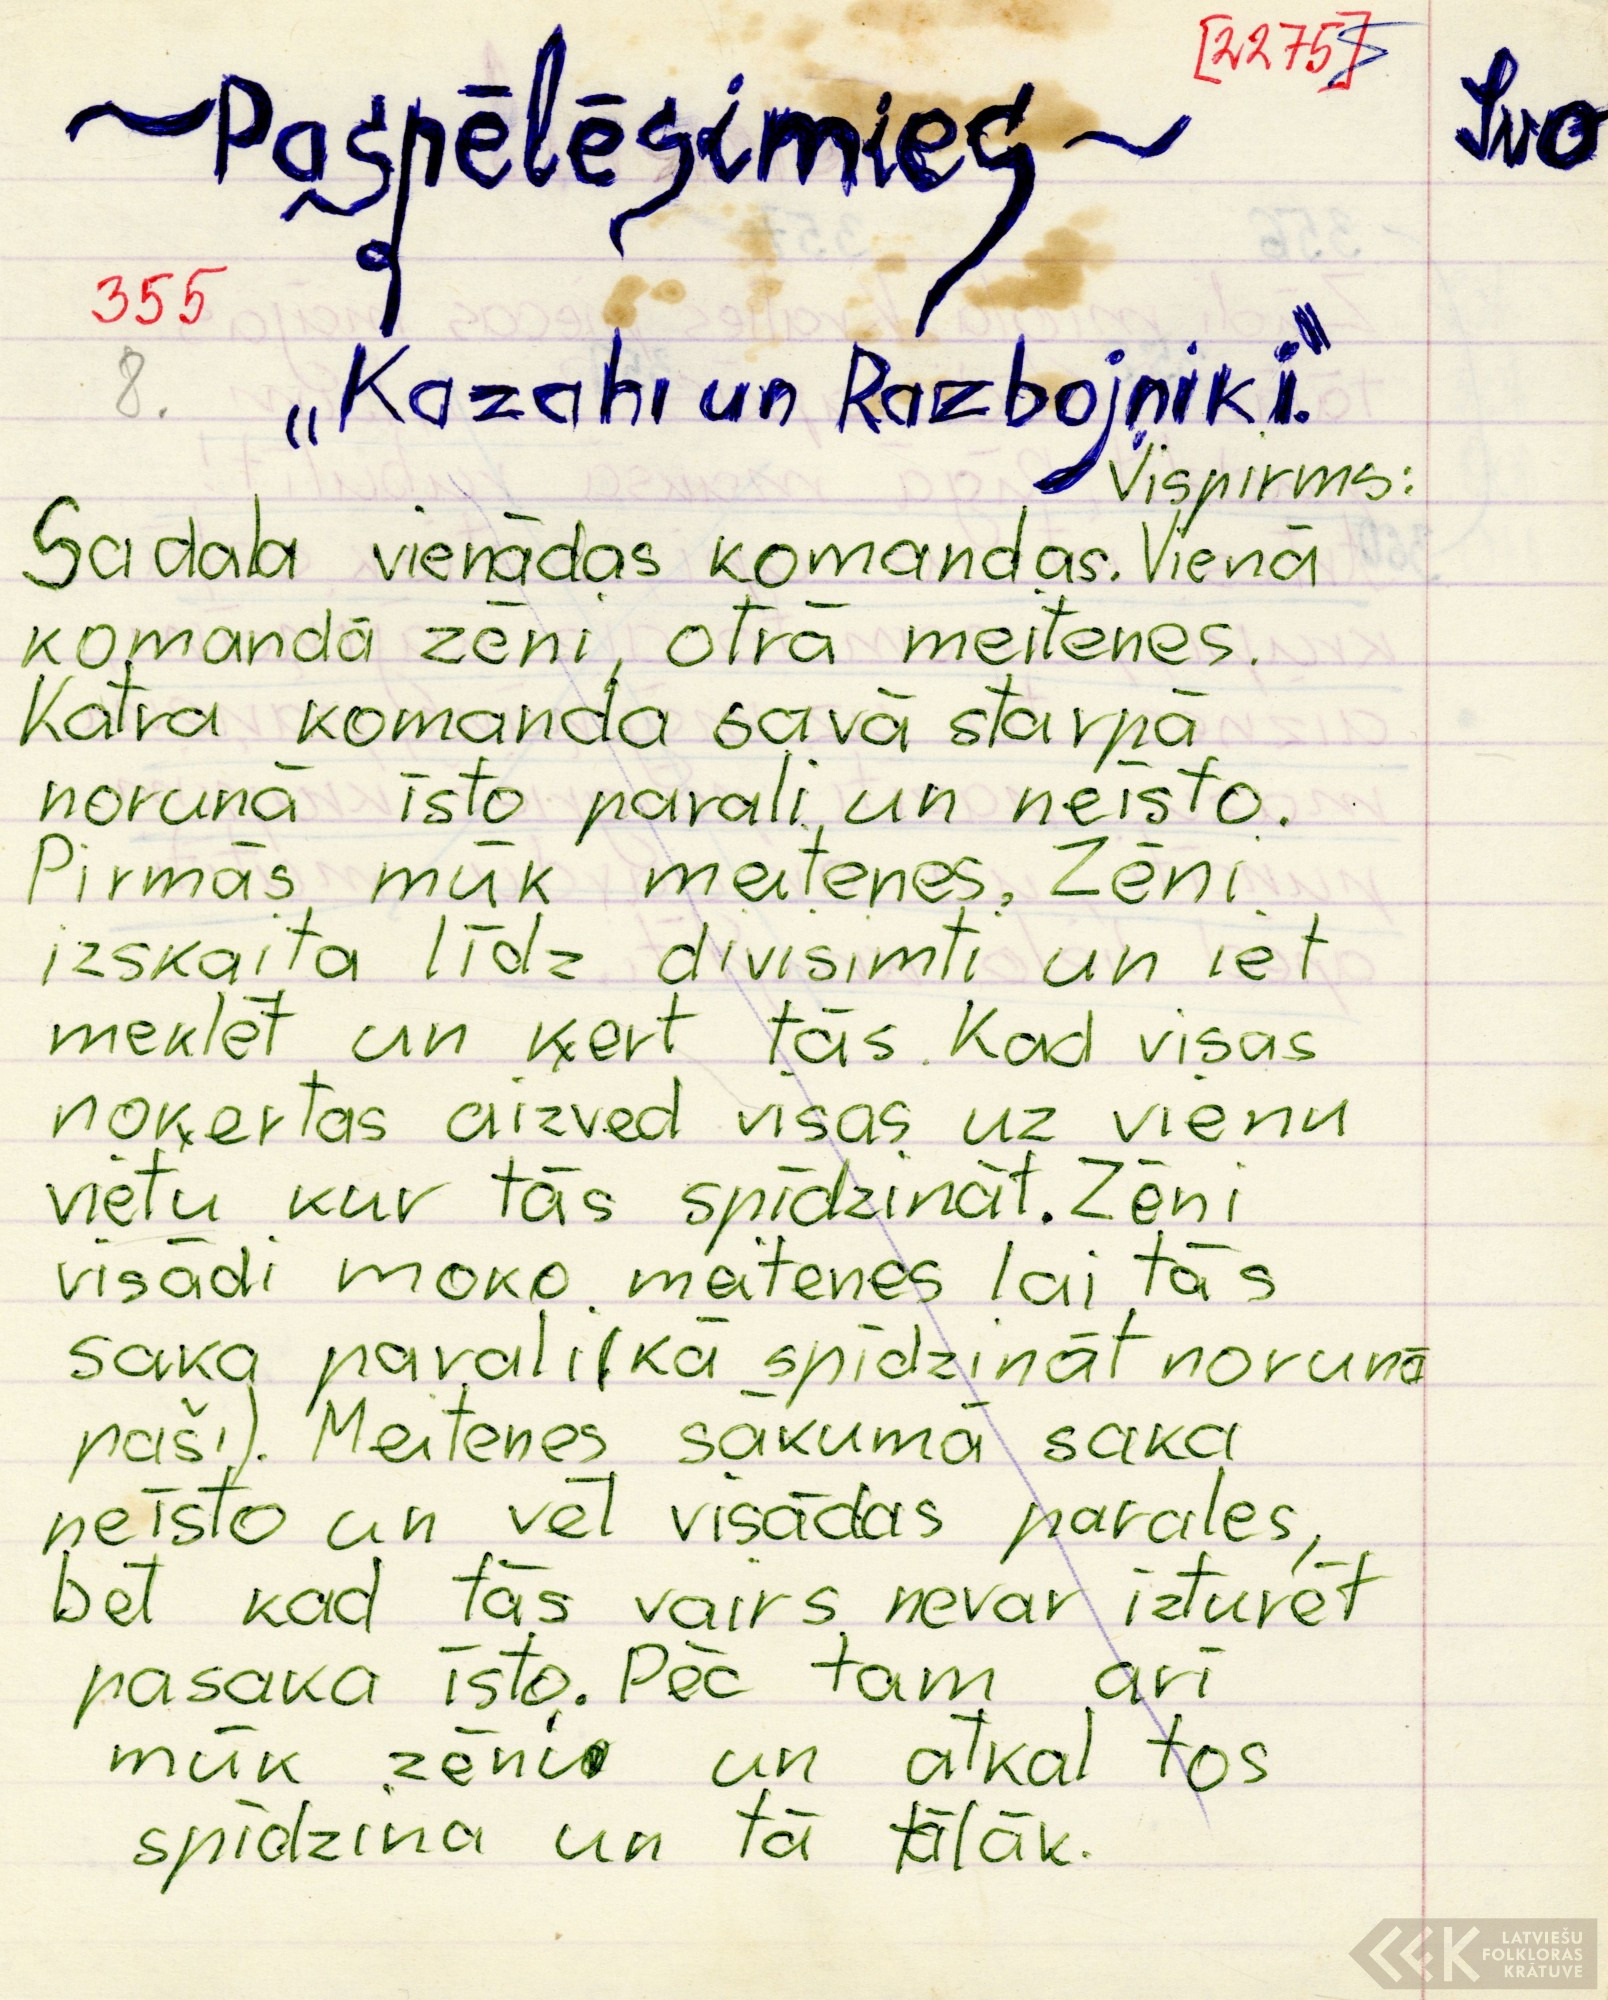 [2275]
~Paspēlēsimies~
Ivo
355
8.
„Kazahi un Razbojņiki."
Vispirms:
Sadala vienādas komandas. Vienā
komandā zēni, otrā meitenes.
Katra komanda savā starpā
norunā īsto parali un neīsto.
Pirmās mūk meitenes. Zēni
izskaita līdz divisimti un iet
meklēt un ķert tās. Kad visas
noķertas aizved visas uz vienu
vietu kur tās spīdzināt. Zēni
visādi moka meitenes lai tās
saka parali (kā spīdzināt norunā
paši). Meitenes sākumā saka
neīsto un vēl visādas parales,
bet kad tās vairs nevar izturēt
pasaka īsto. Pēc tam arī
mūk zēni un atkal tos
spīdzina un tā tālāk.
LATVIEŠU
FOLKLORAS
KRĀTUVE